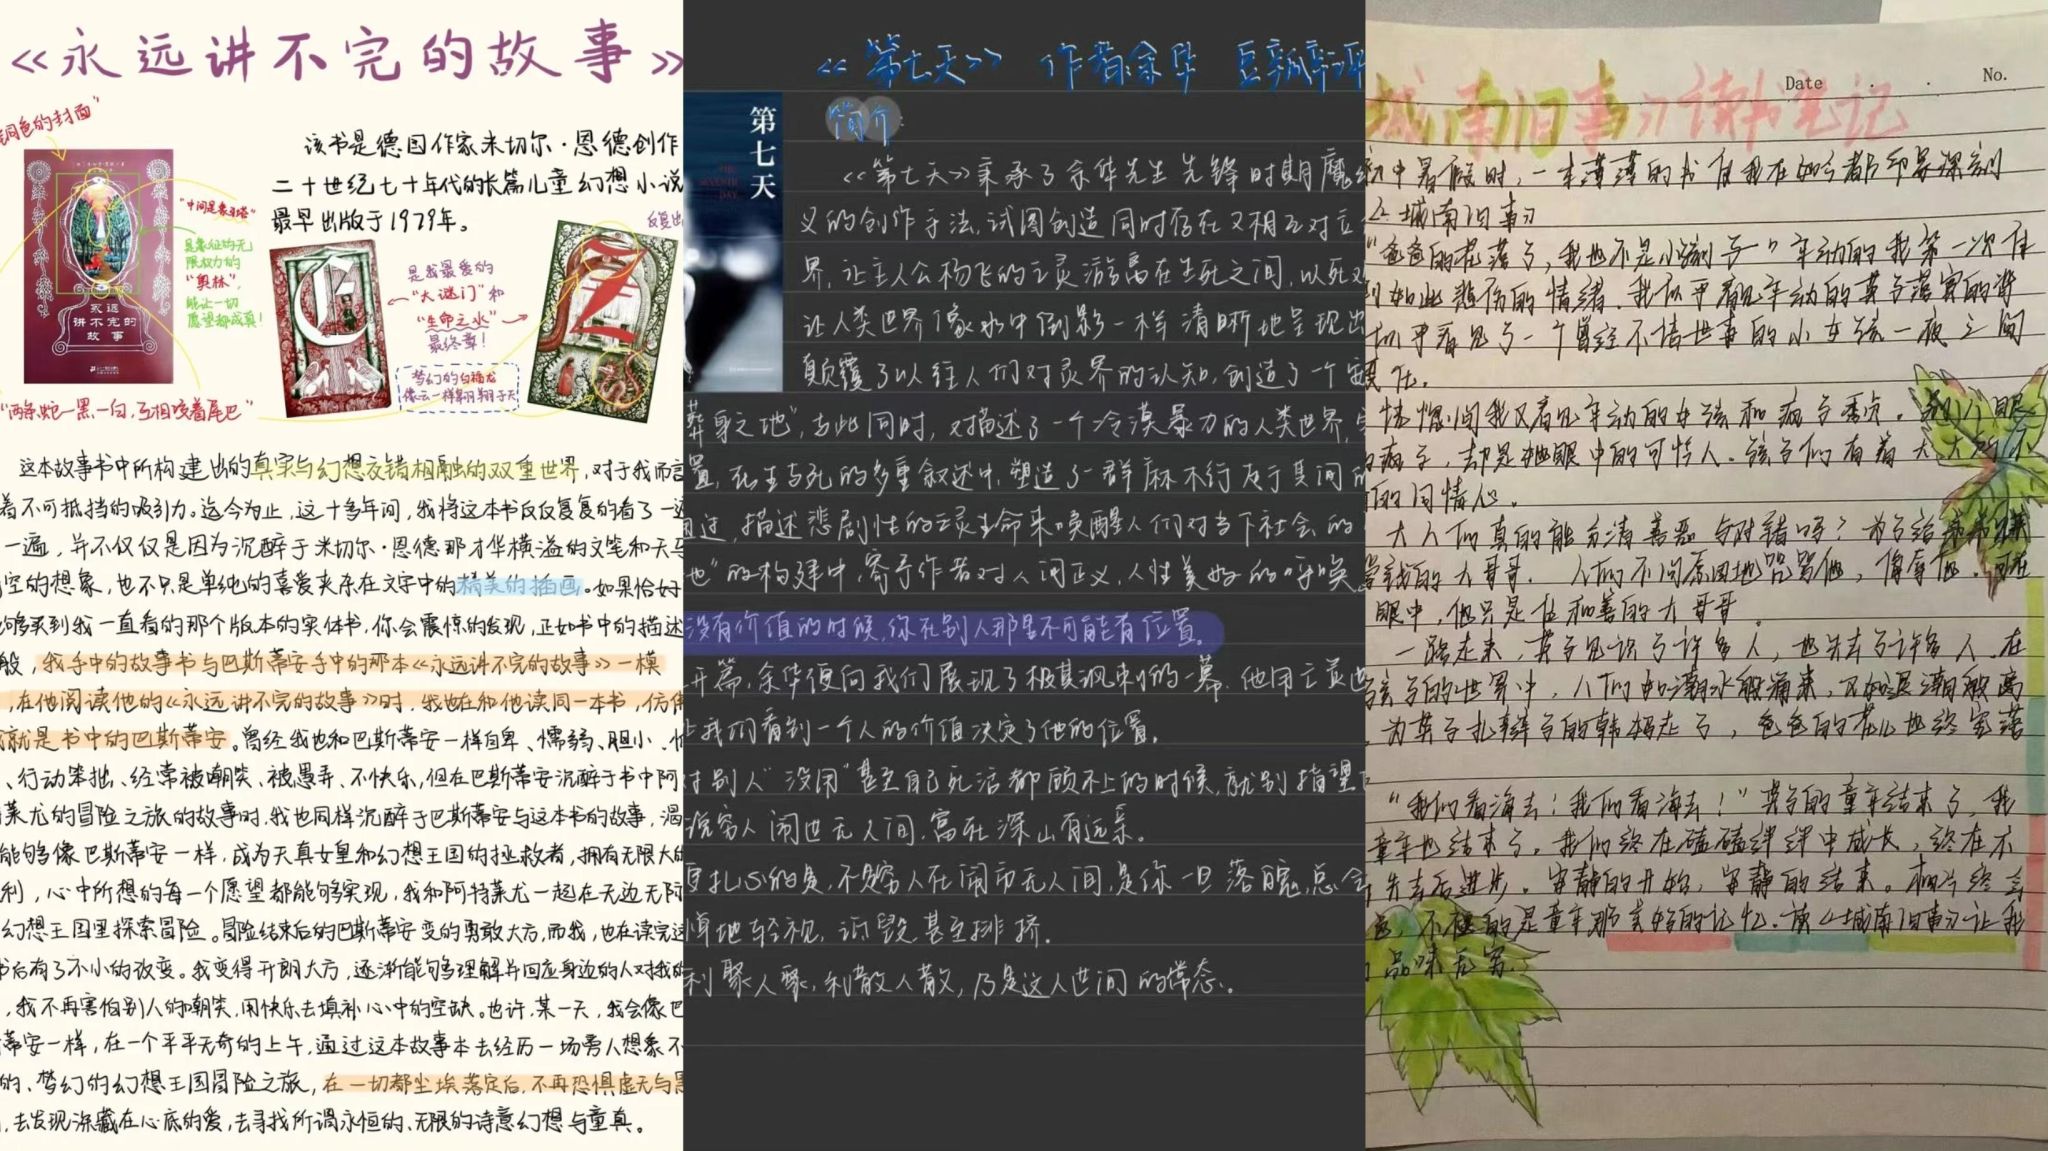 《永远讲不完的故事》
铜色的封面"
该书是德国作家米切尔·恩德创作
二十世纪七十年代的长篇儿童幻想小说
最早出版于1979年。
"中间是象牙塔"
是象征的无
限权力的
"奥林",
能让一切
愿望都成真!
永远
讲不完的
故事
是我最爱的
"大谜门"和
"生命之水"
最终章!
梦幻的白福龙
像云一样翱翔于天
"两条蛇一黑一白,互相咬着尾巴"
这本故事书中所构建出的真实与幻想交错相融的双重世界,对于我而言
着不可抵挡的吸引力。迄今为止,这十多年间,我将这本书反反复复的看了一遍
一遍,并不仅仅是因为沉醉于米切尔·恩德那才华横溢的文笔和天马
空的想象,也不只是单纯的喜爱夹杂在文字中的精美的插画。如果恰好
够买到我一直看的那个版本的实体书,你会震惊的发现,正如书中的描述
般,我手中的故事书与巴斯蒂安手中的那本《永远讲不完的故事》一模
,在他阅读他的《永远讲不完的故事》时,我也在和他读同一本书,仿佛
就是书中的巴斯蒂安。曾经我也和巴斯蒂安一样自卑、懦弱、胆小、
、行动笨拙、经常被嘲笑、被愚弄、不快乐,但在巴斯蒂安沉醉于书中阿
莱尤的冒险之旅的故事时,我也同样沉醉于巴斯蒂安与这本书的故事,渴
能够像巴斯蒂安一样,成为天真女皇和幻想王国的拯救者,拥有无限大的
利,心中所想的每一个愿望都能够实现,我和阿特莱尤一起在无边无际
幻想王国里探索冒险。冒险结束后的巴斯蒂安变的勇敢大方,而我,也在读完这
书后有了不小的改变。我变得开朗大方,逐渐能够理解并回应身边的人对我的
,我不再害怕别人的嘲笑,用快乐去填补心中的空缺。也许,某一天,我会像巴
蒂安一样,在一个平平无奇的上午,通过这本故事本去经历一场旁人想象不
的、梦幻的幻想王国冒险之旅,在一切都尘埃落定后,不再恐惧虚无与黑
,去发现深藏在心底的爱,去寻找所谓永恒的、无限的诗意幻想与童真。
《第七天》 作者:余华 豆瓣评
第七天
THE SEVENTH DAY
简介
《第七天》秉承了余华先生先锋时期魔幻
义的创作手法,试图创造同时存在又相互对立
界,让主人公杨飞的亡灵游离在生死之间,以死对
让人类世界像水中倒影一样清晰地呈现出
颠覆了以往人们对灵界的认知,创造了一个"死
葬身之地",与此同时,又描述了一个冷漠暴力的人类世界,
置,在生与死的多重叙述中,塑造了一群麻木不行反于其间的
通过,描述悲剧性的亡灵生命来唤醒人们对当下社会的
地"的构建中,寄予作者对人间正义,人性美好的呼唤
没有价值的时候,你在别人那里不可能有位置。
开篇,余华便向我们展现了极其讽刺的一幕,他用亡灵世
让我们看到一个人的价值决定了他的位置。
对别人"没用"甚至自己死活都顾不上的时候,就别指望
说穷人闹世无人问,富在深山有远亲。
更扎心的是,不是穷人在闹市无人问,是你一旦落魄,总会
惮地轻视,诋毁甚至排挤.
利聚人聚,利散人散,乃是这人世间的常态。
Date . . No.
城南旧事》读书笔记
初中暑假时,一本薄薄的书使我在如今都印象深刻
《城南旧事》
"爸爸的花落了,我也不是小孩子"年幼的我第一次体
到如此悲伤的情绪.我似乎看见年幼的英子落寞的背
似乎看见了一个曾经不谙世事的小女孩一夜之间
大.
恍惚间我又看见年幼的女孩和疯子秀贞.别人眼
疯子,却是她眼中的可怜人.孩子们有着大人所不
有的同情心。
大人们真的能分清善恶与对错吗?为了给弟弟攒
学钱的大哥哥. 人们不问原因地咒骂他,侮辱他.可在
眼中,他只是位和善的大哥哥.
一路走来,英子见识了许多人,也失去了许多人.在
孩子的世界中,人们如潮水般涌来,又如退潮般离
为英子扎辫子的韩妈走了,爸爸的花儿也终究落
"我们看海去!我们看海去!"英子的童年结束了,我
童年也结束了。我们终在磕磕绊绊中成长,终在不
失去后进步。安静的开始,安静的结束。相片终会
色,不褪的是童年那美好的记忆.读《城南旧事》让我
品味无穷.